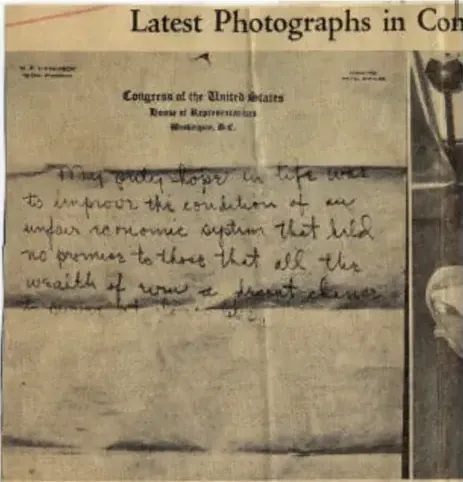 Latest Photographs in Con
Congress of the United States
House of Representatives
Washington, D.C.
My only hope in life was
to improve the condition of an
unfair economic system that held
no promise to those that all the
wealth of even a decent chance